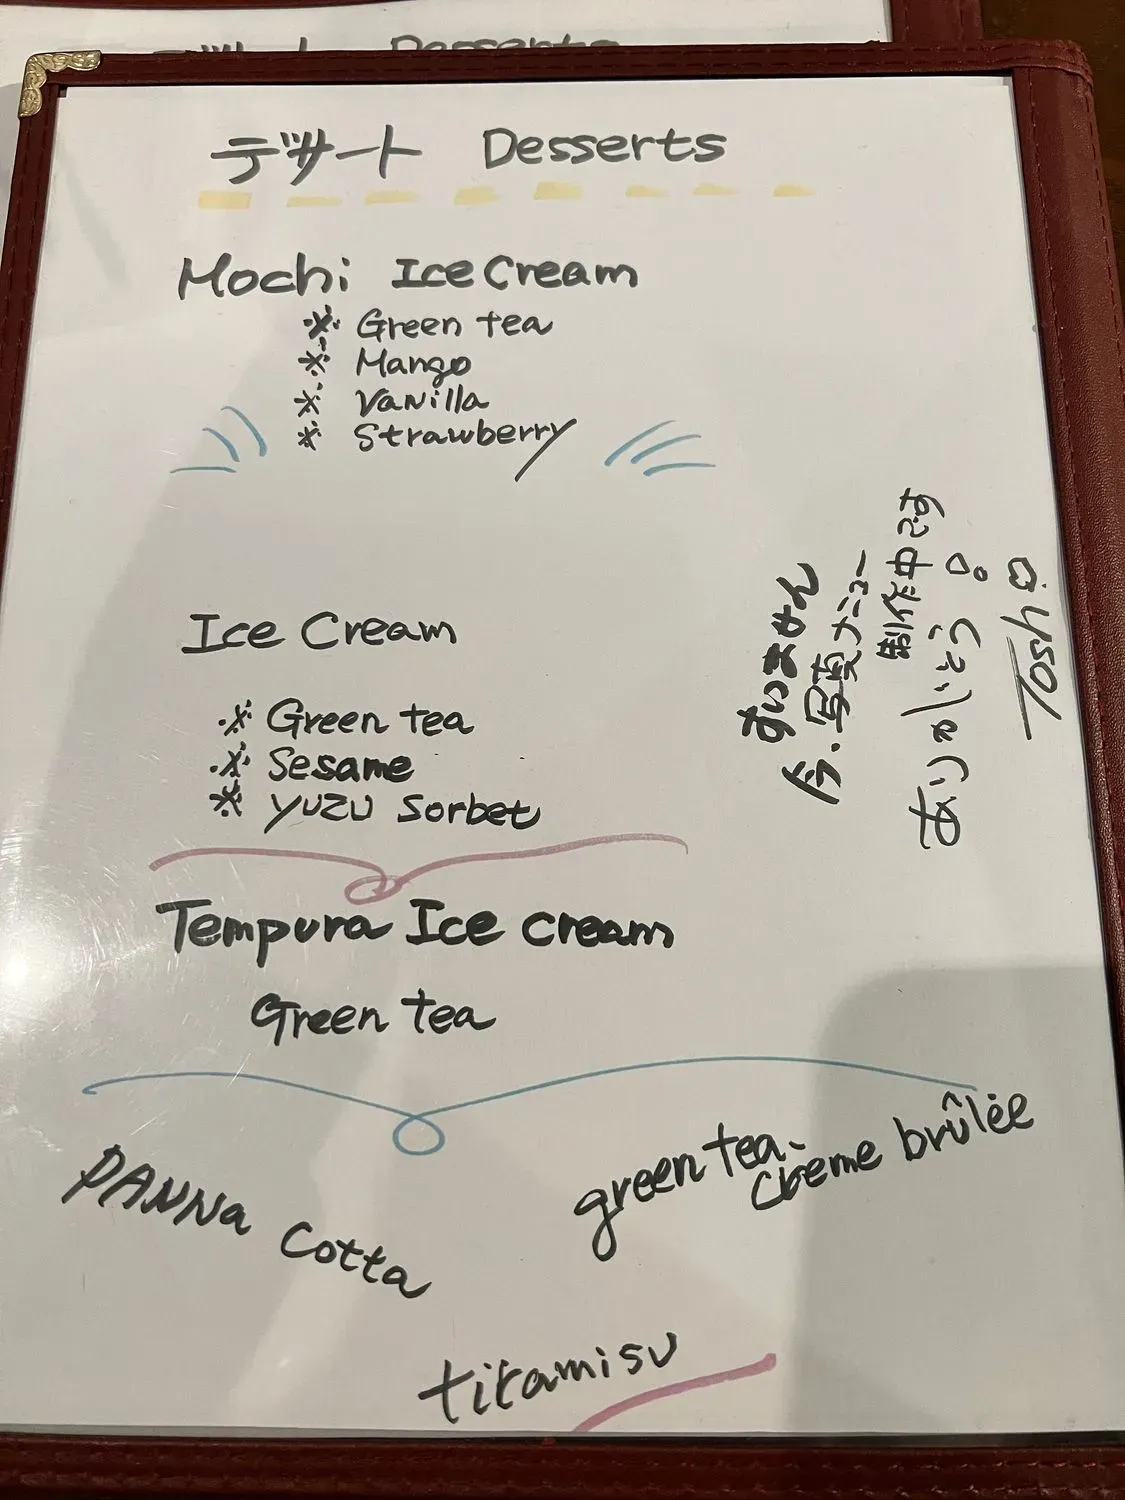 デザート Desserts
Mochi Ice Cream
※ Green tea
※ Mango
※ Vanilla
※ Strawberry
Ice Cream
※ Green tea
※ Sesame
※ YUZU Sorbet
Tempura Ice cream
Green tea
PANNa Cotta
green tea
creme brûlée
titamisu
すいません
今、写真メニュー
制作中です
ありがとう
Desserts